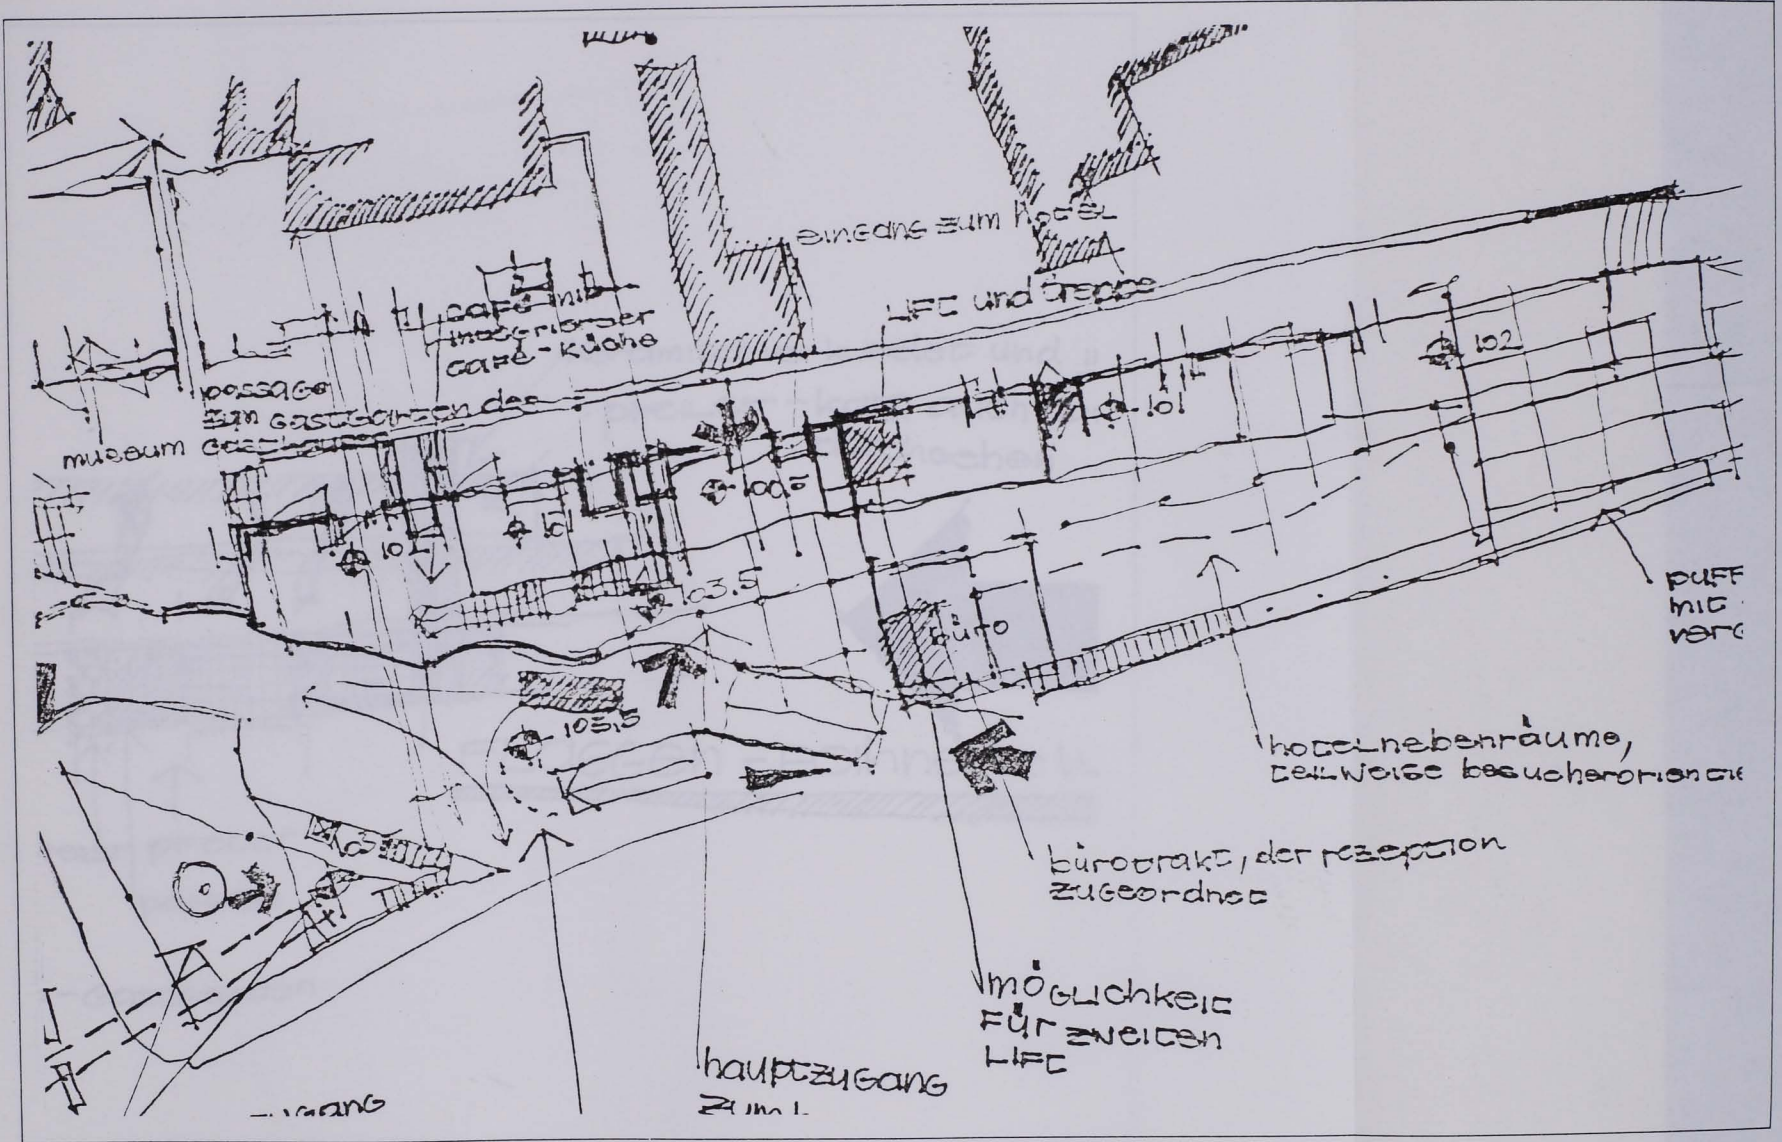 eingang zum hotel
lift und treppe
café mit
integrierter
café-küche
passage
zum gastgarten des
gasthauses
museum
102
101
100,5
101
101
103,5
büro
103,5
puff
mit
hotelnebenräume,
teilweise besucherorientie
bürotrakt, der rezeption
zugeordnet
möglichkeit
für zweiten
lift
hauptzugang
zum
zugang